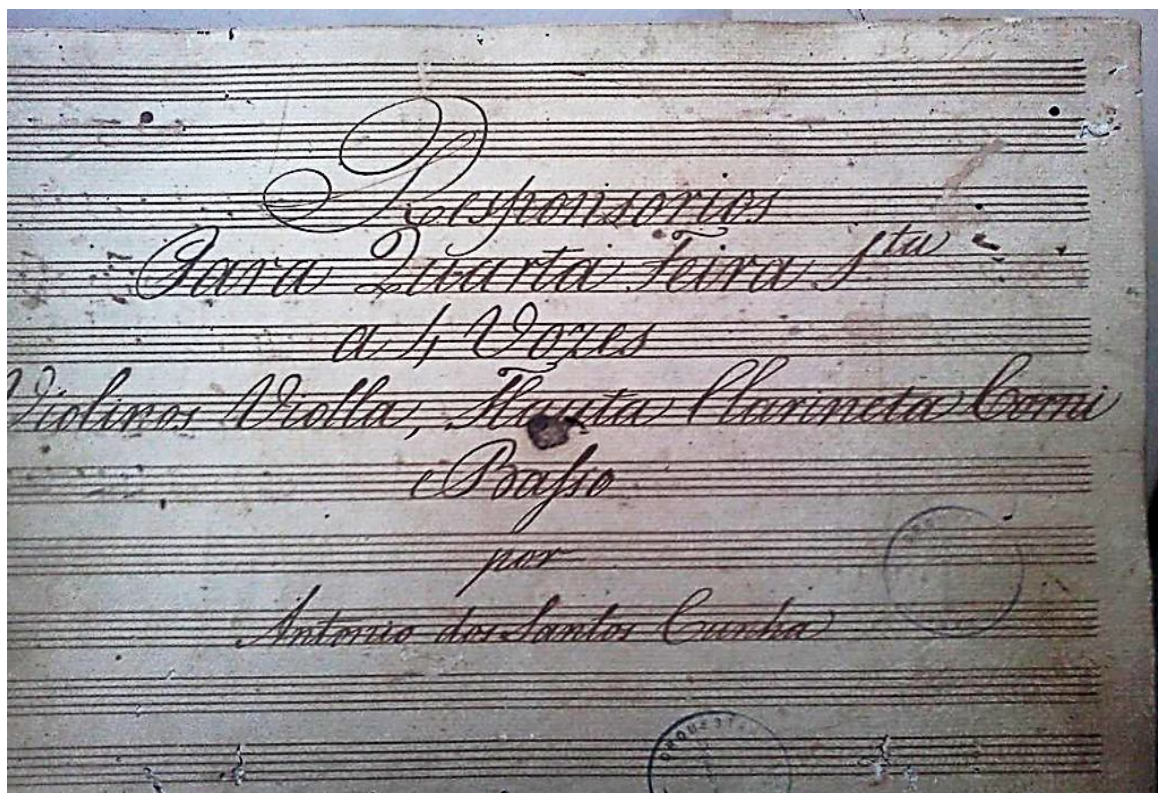 Responsorios
Para Quarta Feira Sta
a 4 Vozes
Violinos Violla, Flauta Clarineta Corni
e Basso
por
Antonio dos Santos Cunha
ORQUESTA